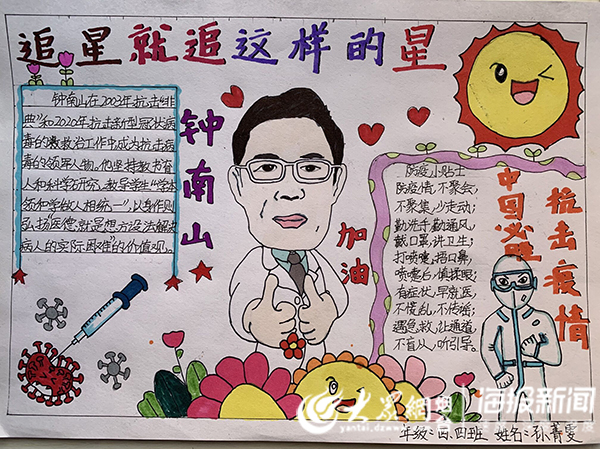 追星就追这样的星
钟南山在2003年抗击非
典和2020年抗击新型冠状病
毒的救治工作中成为抗击病
毒的领军人物。他坚持教书育
人和科学研究,教导学生“学本
领和学做人相统一”,以身作则
弘扬“医德就是想方设法解决
病人的实际困难”的价值观。
钟南山
加油
防疫小贴士
防疫情,不聚会,
不聚集,少走动;
勤洗手,勤通风,
戴口罩,讲卫生;
打喷嚏,捂口鼻,
喷嚏后,慎揉眼;
有症状,早就医,
不慌乱,不传谣;
遇急救,让通道,
不盲从,听引导。
中国必胜
抗击疫情
大众网 海报新闻
年级:四.四班 姓名:孙菁雯